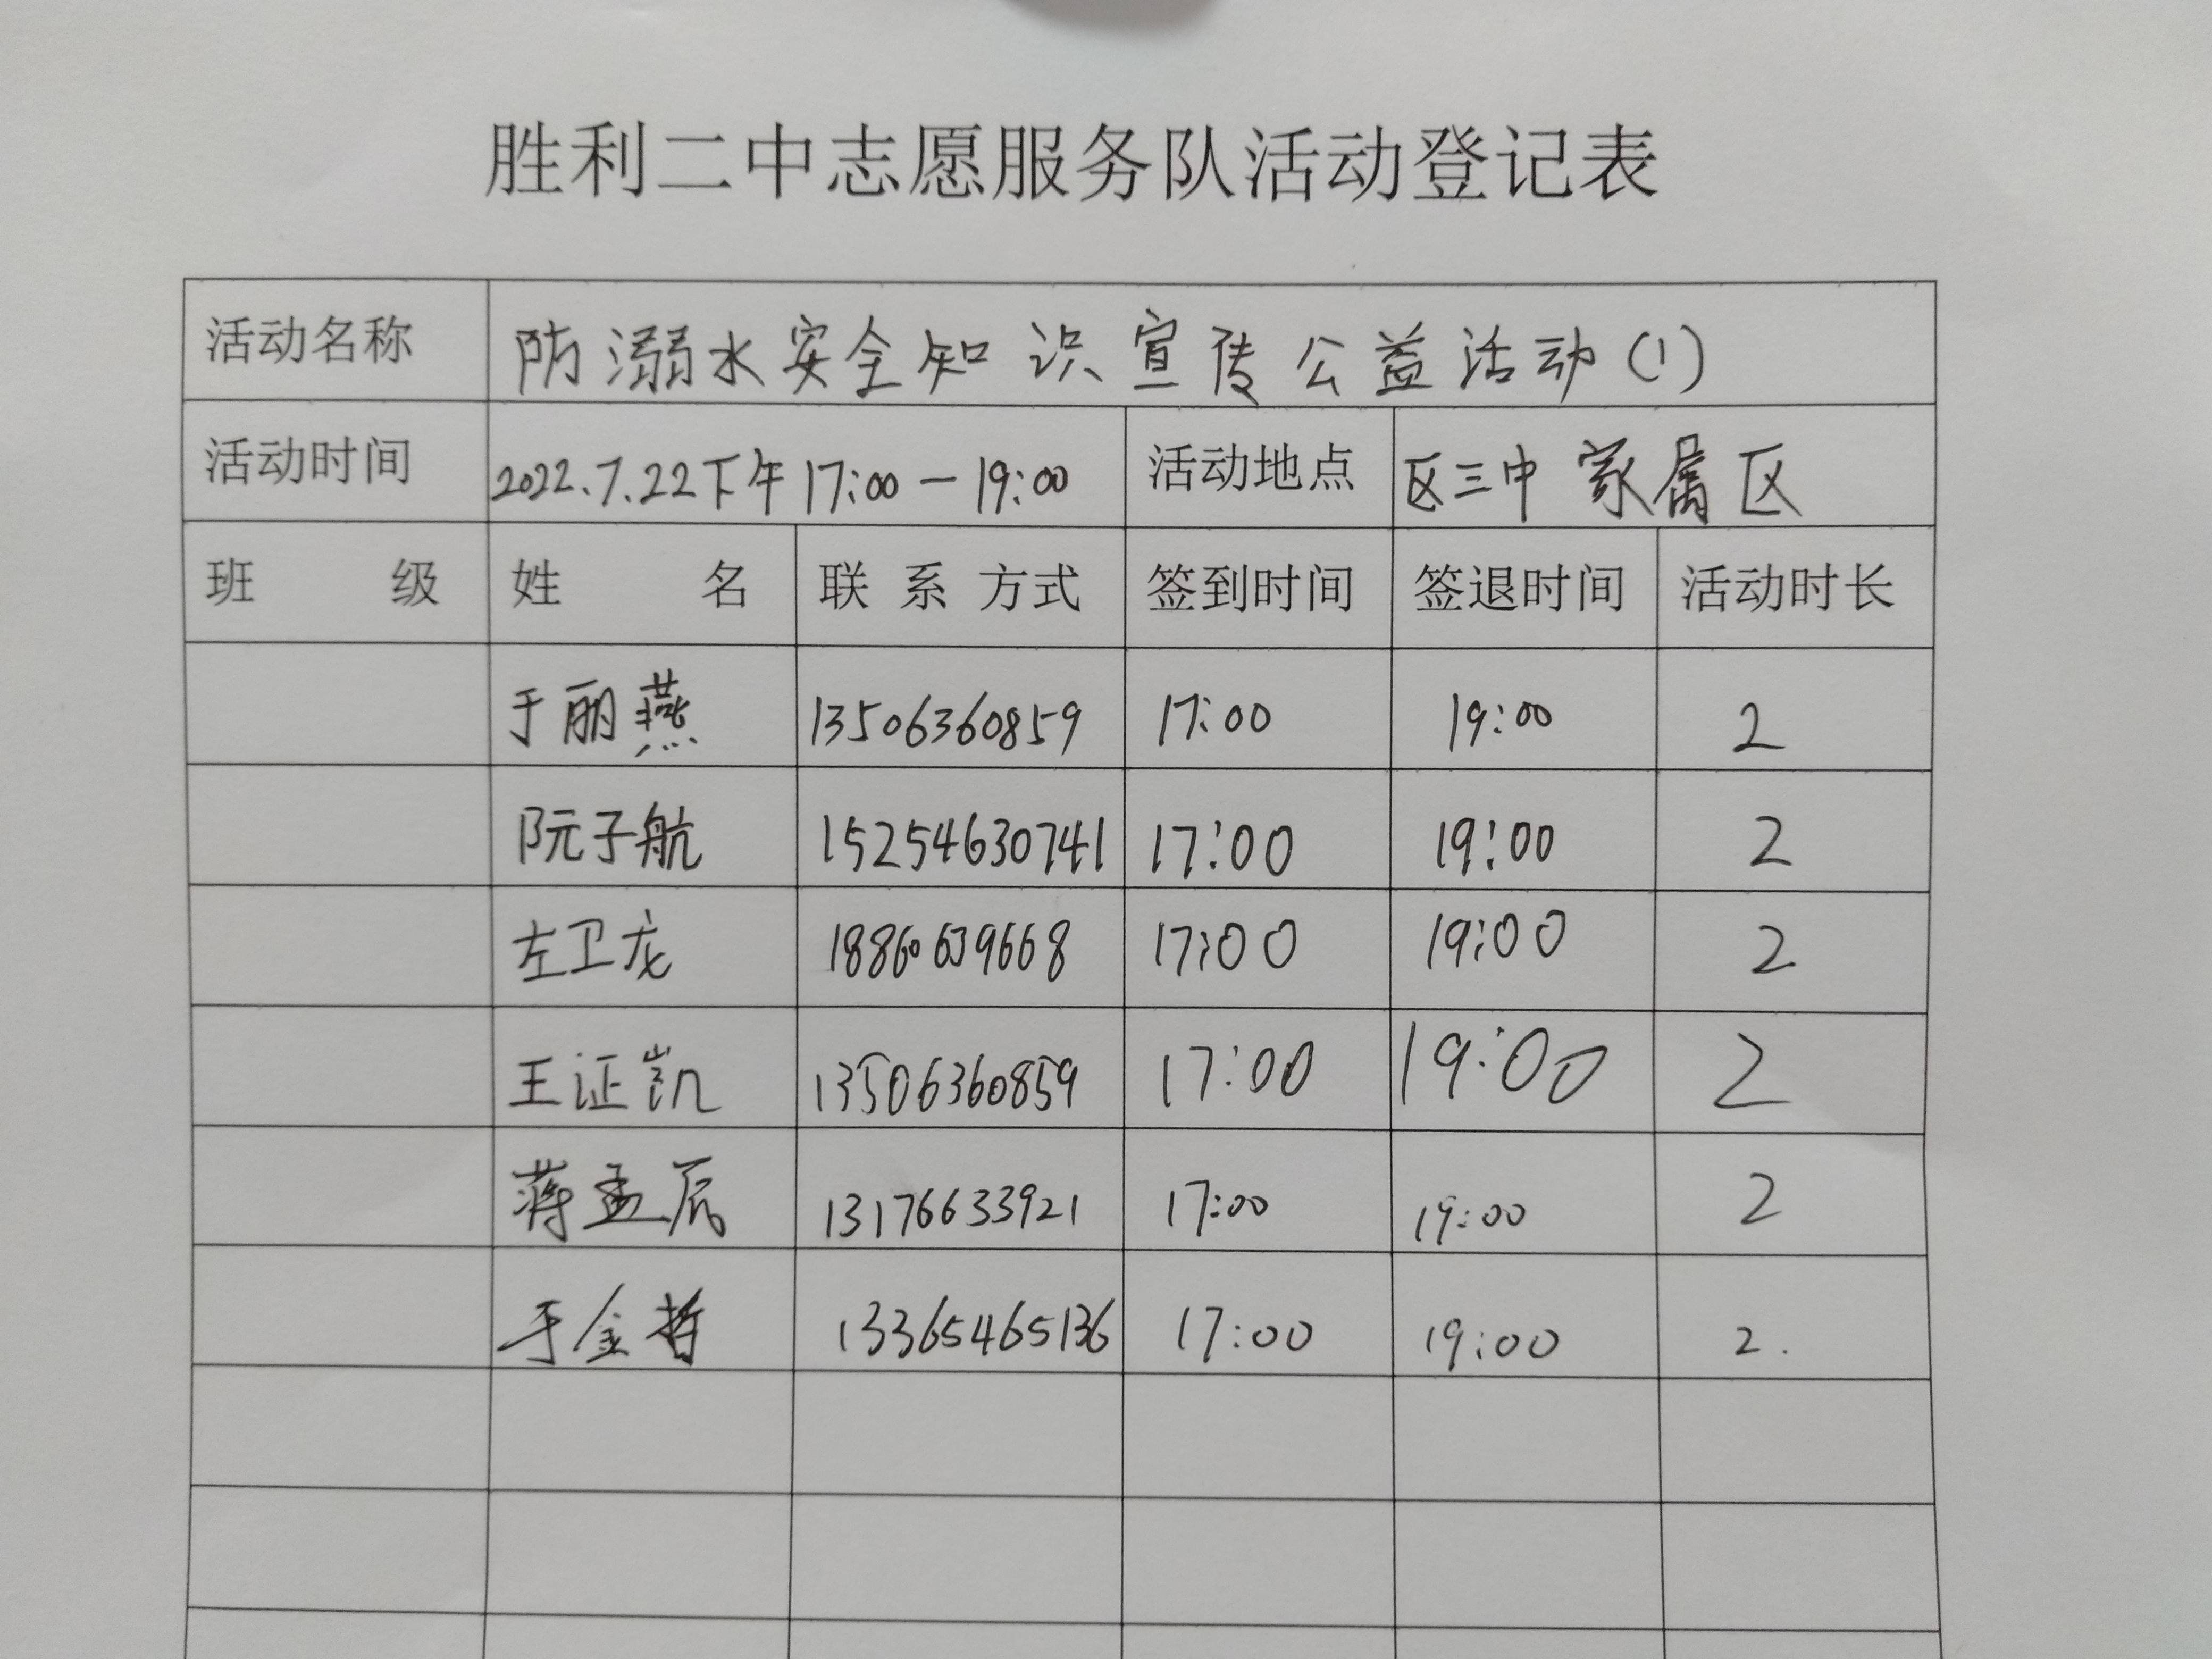 胜利二中志愿服务队活动登记表
活动名称 防溺水安全知识宣传公益活动(1)
活动时间 2022.7.22下午17:00-19:00 活动地点 区三中家属区
班 级 姓 名 联系方式 签到时间 签退时间 活动时长
于丽燕 13506360859 17:00 19:00 2
阮子航 15254630741 17:00 19:00 2
左卫龙 18860639668 17:00 19:00 2
王证凯 13506360859 17:00 19:00 2
蒋孟辰 13176633921 17:00 19:00 2
于金哲 13365465136 17:00 19:00 2.